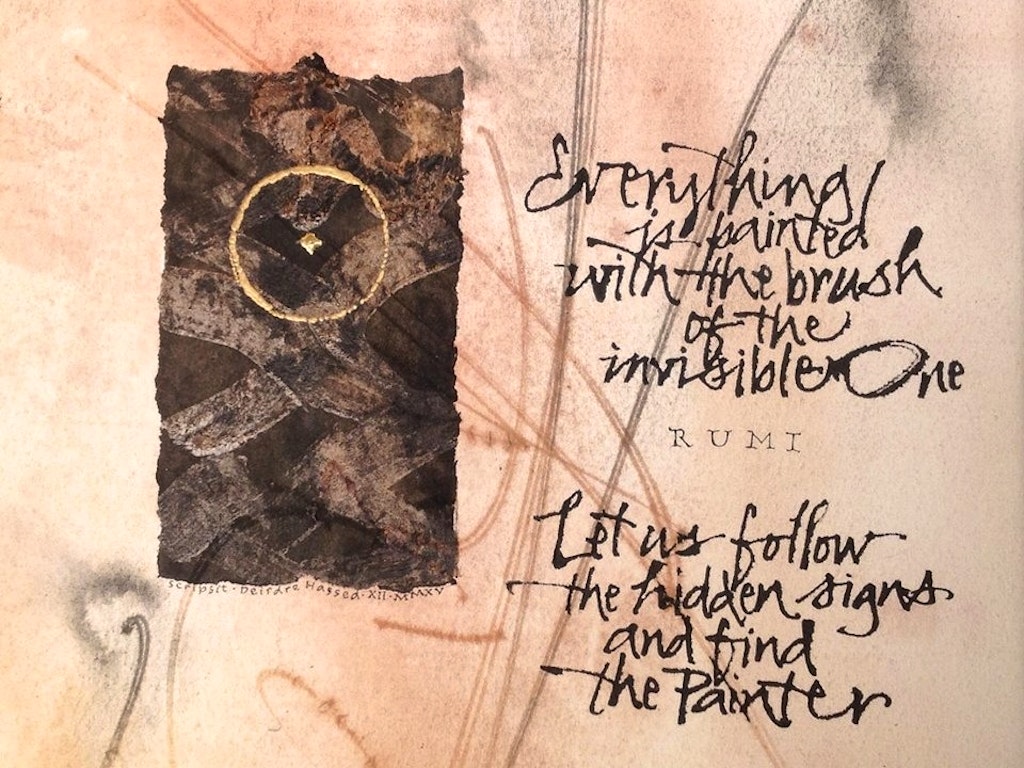 Everything
is painted
with the brush
of the
invisible One
RUMI
Let us follow
the hidden signs
and find
the Painter
scripsit · Deirdre Hassed · XII · MMXV